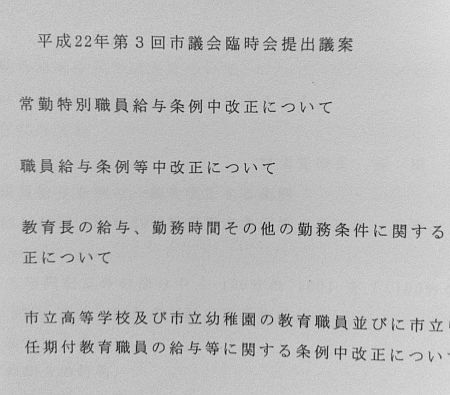 平成22年第3回市議会臨時会提出議案
常勤特別職員給与条例中改正について
職員給与条例等中改正について
教育長の給与、勤務時間その他の勤務条件に関する
正について
市立高等学校及び市立幼稚園の教育職員並びに市立
任期付教育職員の給与等に関する条例中改正につい